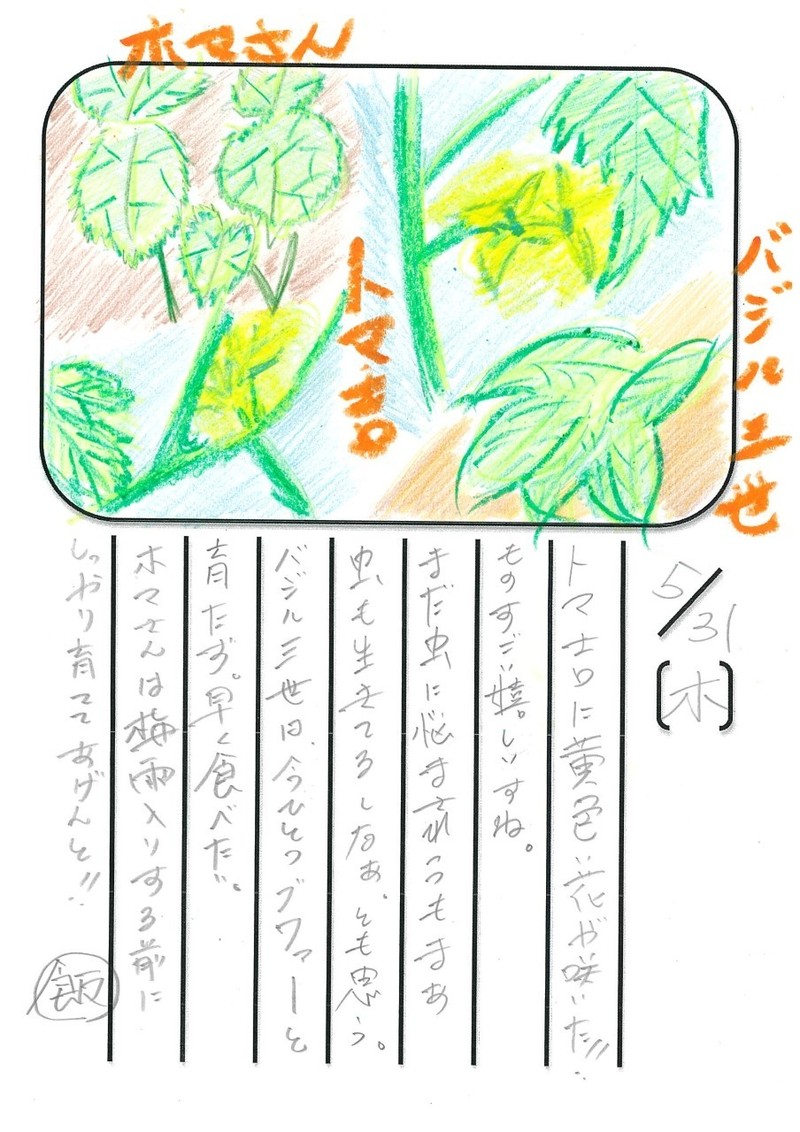 ホマさん
トマ吉
バジル三世
5/31(木)
トマ吉に黄色い花が咲いた!!
ものすごい嬉しいすね。
まだ虫に悩まされつもまあ
虫も生きてるしなぁ、とも思う。
バジル三世は、今ひとつブワァーと
育たず。早く食べたい。
ホマさんは梅雨入りする前に
しっかり育ててあげんと!!
飯